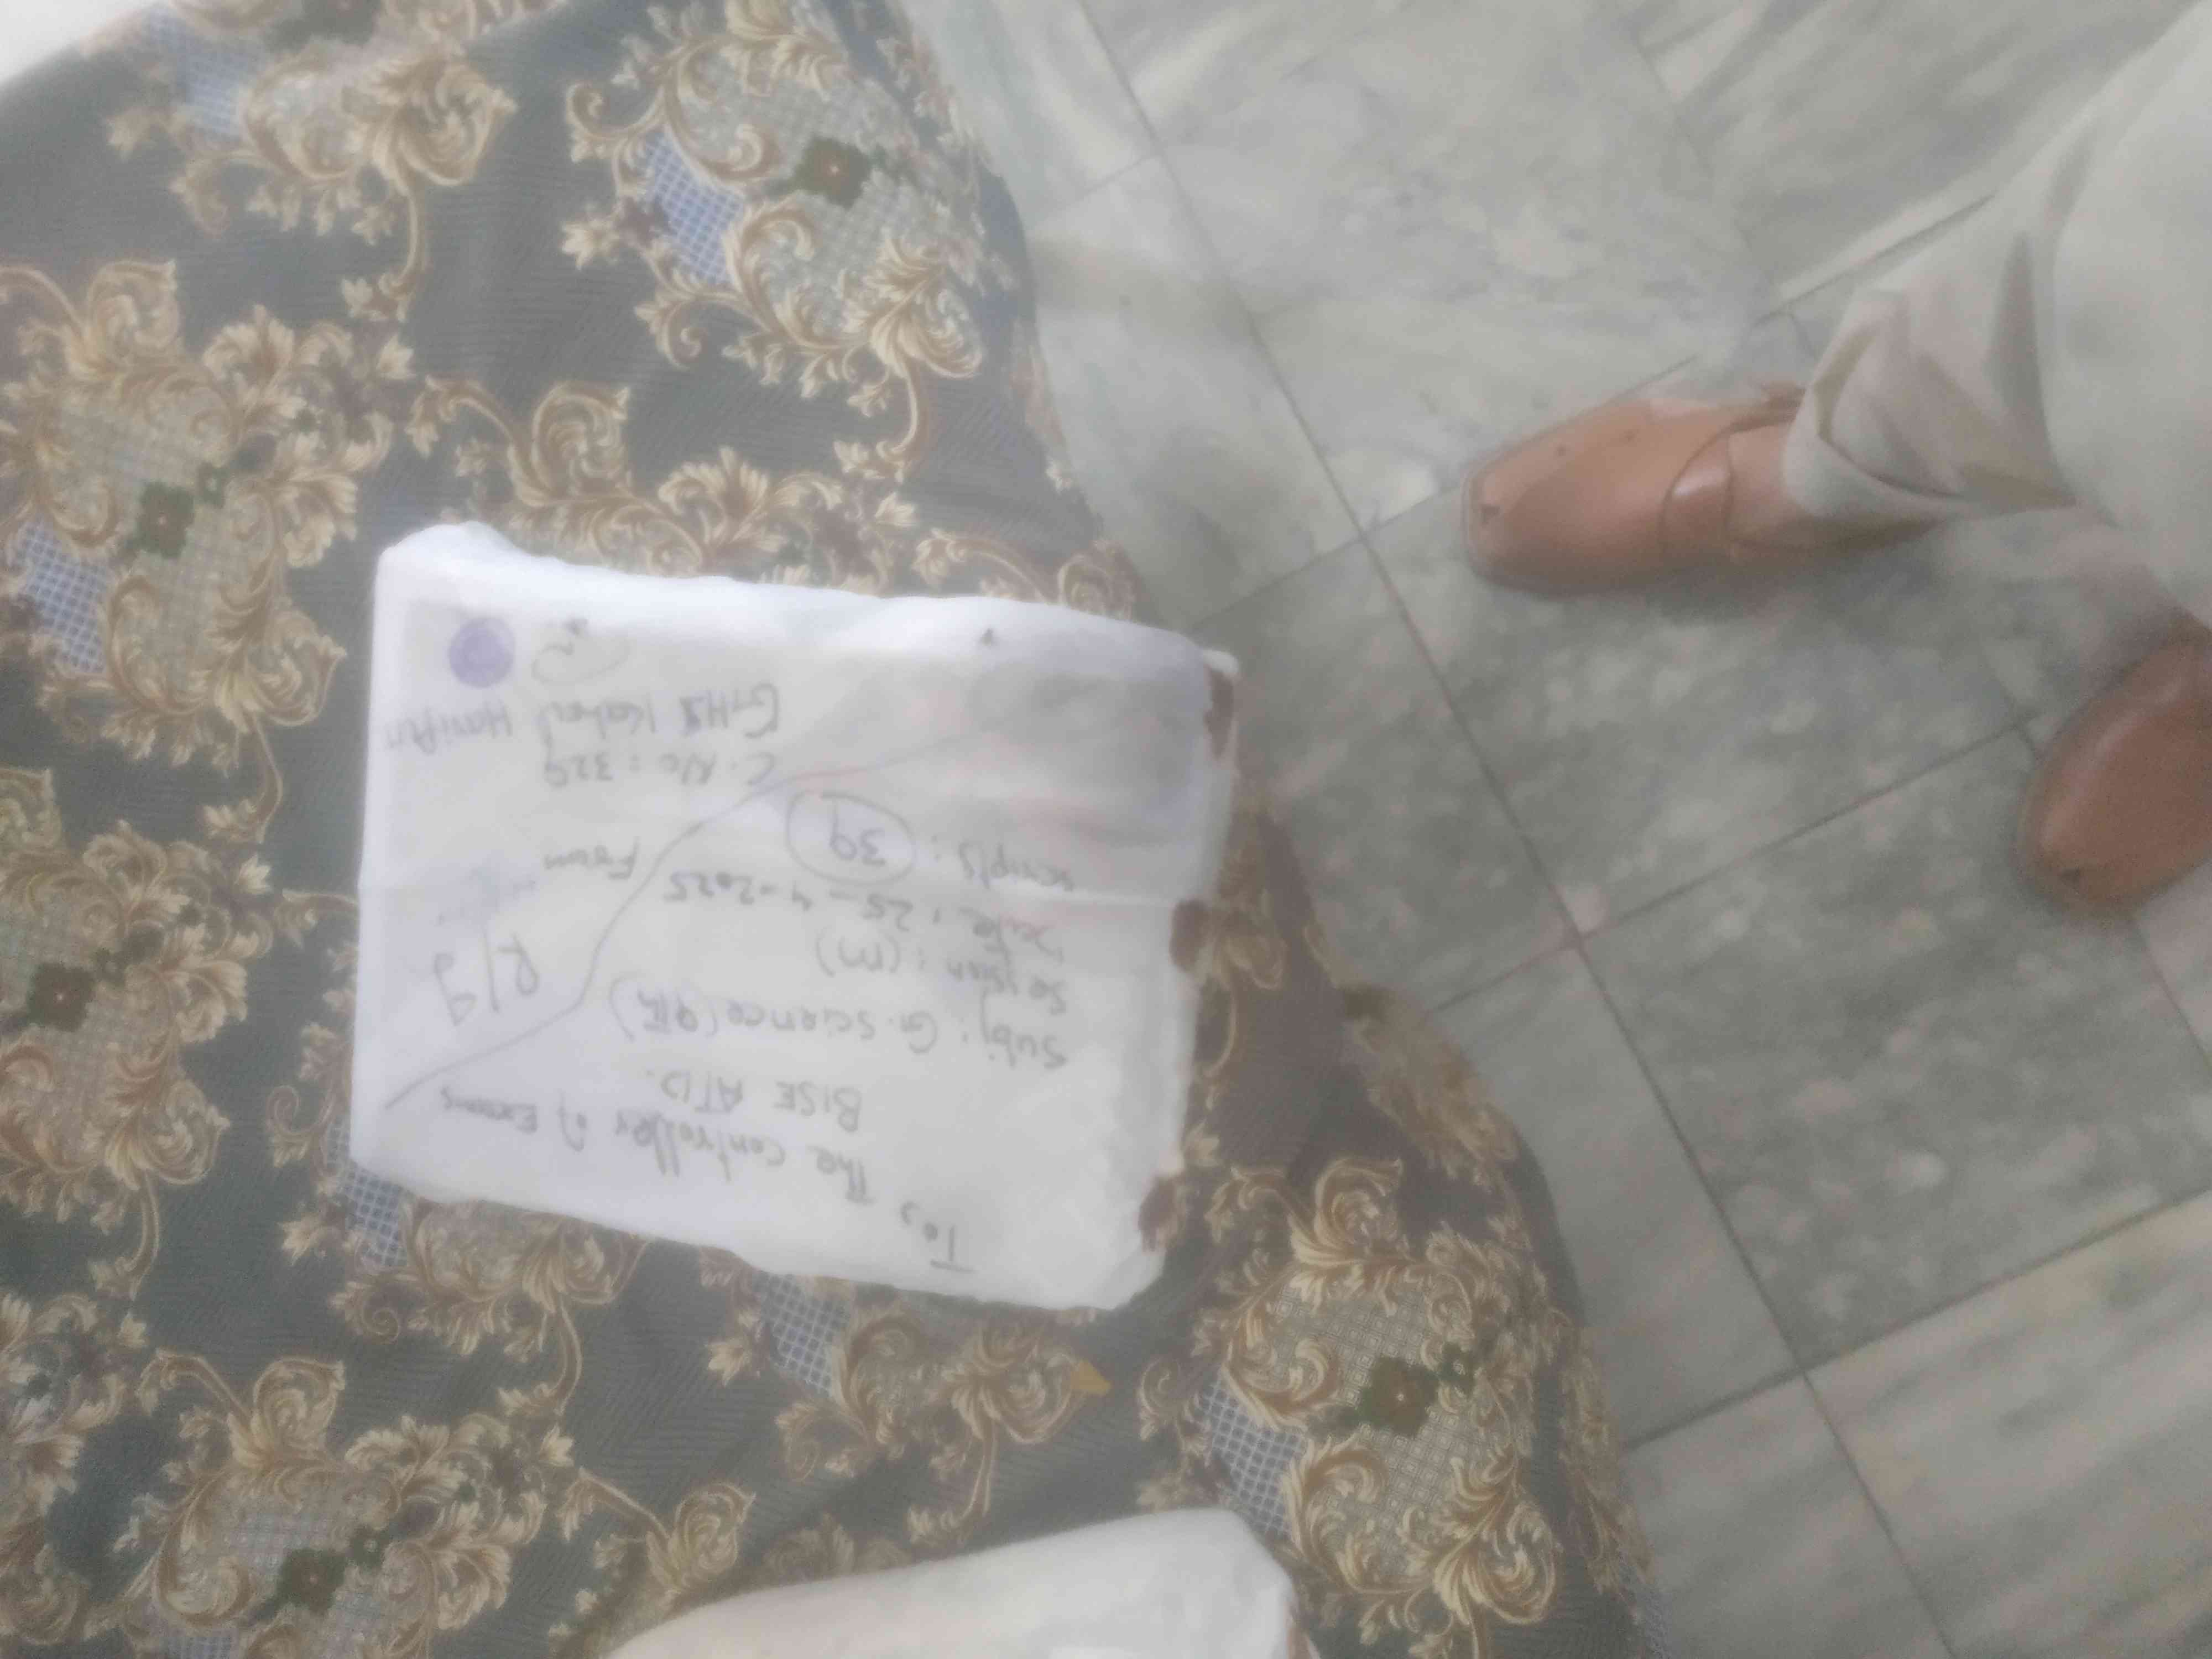 To,
The Controller of Exams
BISE ATD.
Subj: G.science (9th)
Session: (M)
Date: 25-4-2025
scripts: 39
R/9
From
C.No: 329
GHS Kahal